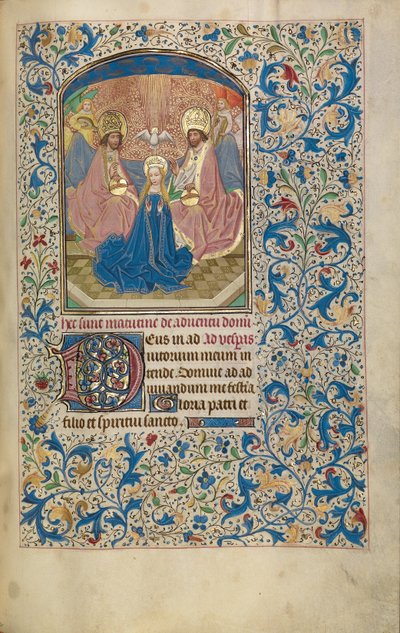 hec sunt matutine de aduentu domi
Deus in ad ad vespas
iutorium meum in
tende Domine ad ad
iuuandum me festia
Gloria patri et
filio et spiritui sancto.